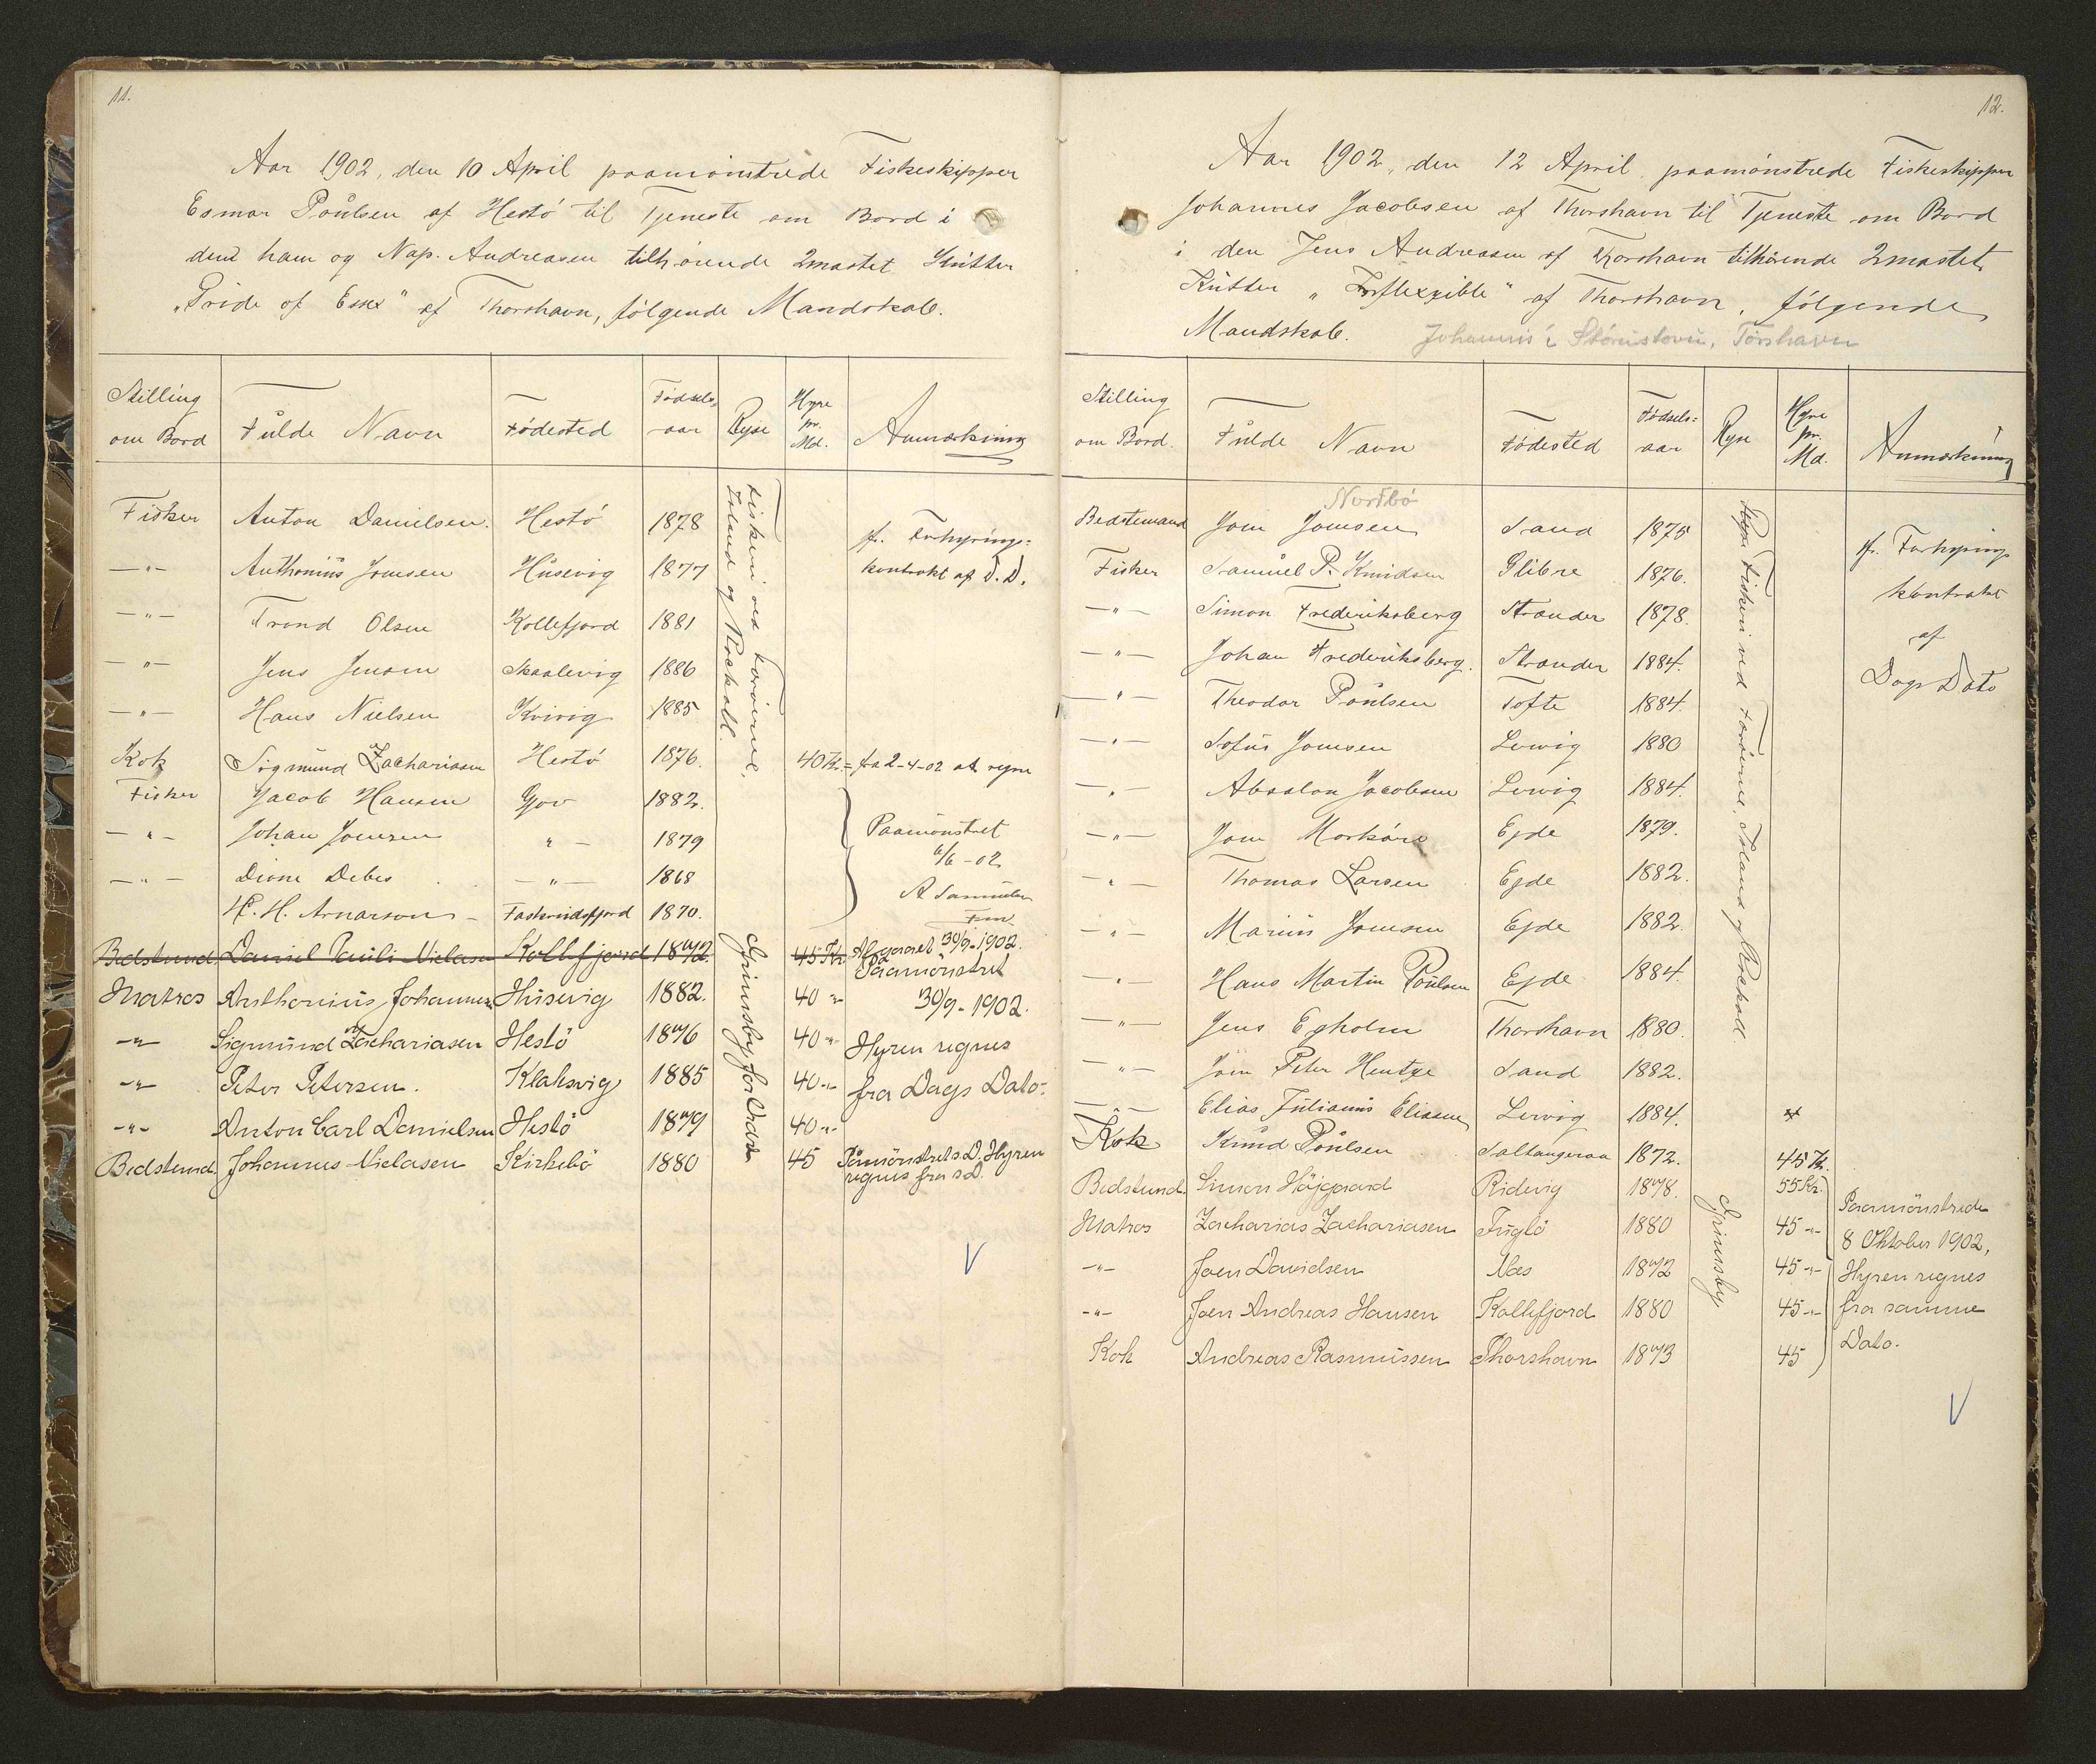 11.
Aar 1902, den 10 April paamönstrede Fiskeskipper
Esmar Poülsen af Hestö til Tjeneste om Bord i
den ham og Nap. Andreasen tilhörende 2mastet Kütter
„Pride of Essex" af Thorshavn, fölgende Mandskab.
Stilling om Bord Fülde Navn Födested Födsels- aar Rejse Hyre pr. Md. Anmærkning
Fisker Anton Danielsen. Hestö 1878
—„— Anthoniüs Joensen Hüsevig 1877
—„— Trond Olsen Kollefjord 1881
—„— Jens Jensen Skaalevig 1886
—„— Hans Nielsen Kvivig 1885
Kok Sigmünd Zachariasen Hestö 1876. 40 Kr. = fra 2-4-02 at regne
Fisker Jacob Hansen Gjov 1882.
—„— Johan Joensen „ — 1879
—„— Debes —„— 1868
H. H. Arnarson — Faskrudsfjord 1870.
Fiskeri ved Færöerne,
Island og Rockall.
jfr. Forhyrings=
kontrakt af D. D.
Paamönstret
6/6 - 02
Bedstmnd. Daniel Pauli Nielsen Kollefjord 1872. 45 Kr. Afgaaet 30/9-1902.
Paamönstret
Matros Anthoniüs Johannesen Hüsevig 1882. 40 „ 30/9-1902.
-„- Sigmünd Zachariasen Hestö 1876 40 -„- Hyren regnes
-„- Peter Petersen. Klaksvig 1885 40 -„- fra Dags Dato.
-„- Anton Carl Danielsen Hestö 1879 40 -„-
Bedstmnd. Johannes Nielasen Kirkebö 1880 45 Paamönstret s D. Hyren
regnes fra s D.
Grimsby for Vodn
12.
Aar 1902, den 12 April paamönstrede Fiskeskipper
Johannes Jacobsen af Thorshavn til Tjeneste om Bord
i den Jens Andreasen af Thorshavn tilhörende 2mastet
Kütter „Inflexible" af Thorshavn, fölgende
Mandskab. Johannis í Stórustovu, Tórshavn
Stilling om Bord. Fülde Navn Födested Födsels= aar Rejse Hyre pr. Md. Anmærkning
Norðbö
Bedstemand Joen Joensen Sand 1875
Fisker Samüel P. Knüdsen Glibre 1876.
—„— Simon Frederiksberg Strander 1878.
—„— Johan Frederiksberg. Strander 1884.
—„— Theodor Poülsen Tofte 1884.
—„— Sofüs Joensen Lervig 1880
—„— Absalon Jacobsen Lervig 1884.
—„— Joen Morköre Ejde 1879.
—„— Thomas Larsen Ejde 1882.
—„— Mariüs Joensen Ejde 1882.
—„— Hans Martin Poülsen Ejde 1884.
—„— Jens Egholm Thorshavn 1880.
—„— Joen Peter Hentze Sand 1882.
—„— Elias Jülianüs Eliasen Lervig 1884.
Kok Knüd Poülsen Saltangeraa 1872. 45 Kr.
Fiskeri ved Færöerne, Island og Rockall.
jfr. Forhyrings
kontrakt
af
Dags Dato
Bedstmnd. Simon Höjgaard Ridevig 1878. 55 Kr.
Matros Zacharias Zachariasen Füglö 1880 45 -„-
-„- Joen Davidsen Næs 1872 45 -„-
-„- Joen Andreas Hansen Kollefjord 1880 45 -„-
Kok Andreas Rasmüssen Thorshavn 1873 45
Grimsby
Paamönstrede
8 Oktober 1902,
Hyren regnes
fra samme
Dato.